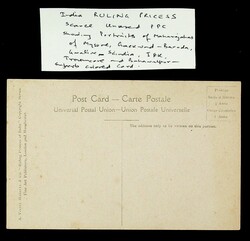 India RULING PRICESS
Scarce Unused PPC
Showing Portraits of Maharajahas
of Mysore, Gaekwad - Baroda,
Gwalior Scindia, J&K
Travancore and Bahawalpur
Superb colored Card -
Post Card — Carte Postale
Universal Postal Union — Union Postale Universelle
The address only to be written on this portion